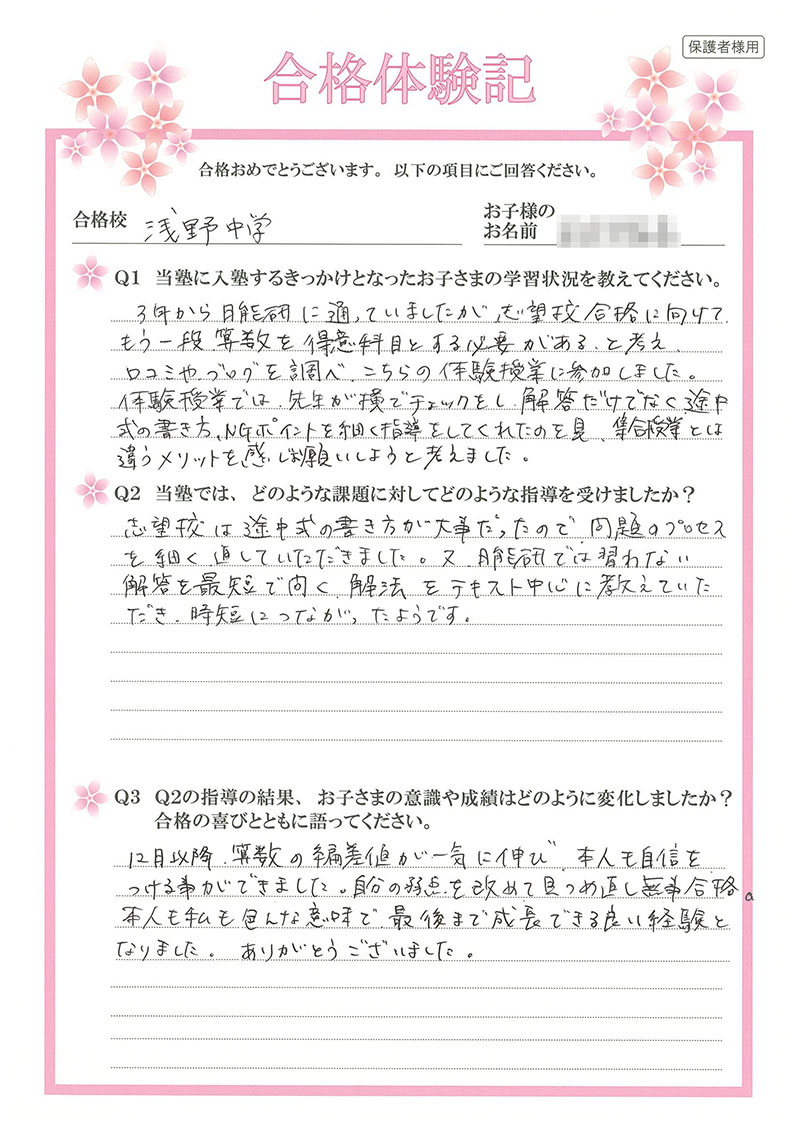 保護者様用
合格体験記
合格おめでとうございます。以下の項目にご回答ください。
合格校 浅野中学
お子様の
お名前
Q1 当塾に入塾するきっかけとなったお子さまの学習状況を教えてください。
3年から日能研に通っていましたが、志望校合格に向けて
もう一段、算数を得意科目とする必要がある、と考え、
口コミやブログを調べ、こちらの体験授業に参加しました。
体験授業では、先生が横でチェックをし、解答だけでなく途中
式の書き方、NGポイントを細く指導をしてくれたのを見、集合授業とは
違うメリットを感じお願いしようと考えました。
Q2 当塾では、どのような課題に対してどのような指導を受けましたか？
志望校は途中式の書き方が大事だったので、問題のプロセス
を細く直していただだきました。又、日能研では習わない
解答を最短で向く、解法をテキスト中心に教えていた
だき、時短につながったようです。
Q3 Q2の指導の結果、お子さまの意識や成績はどのように変化しましたか？
合格の喜びとともに語ってください。
12月以降、算数の偏差値が一気に伸び、本人も自信を
つける事ができました。自分の弱点を改めて見つめ直し無事合格。
本人も私も色んな意味で、最後まで成長できる良い経験と
なりました。 ありがとうございました。